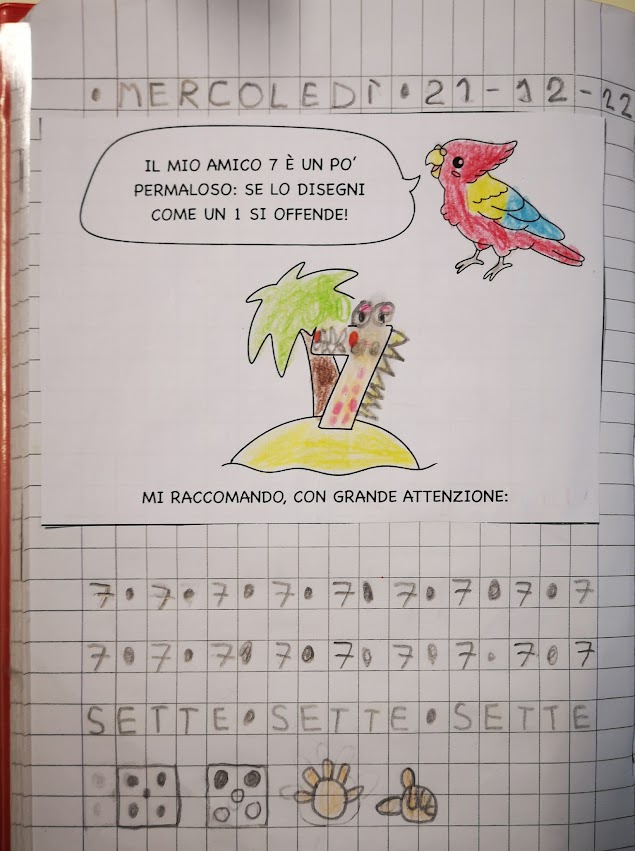 • MERCOLEDÌ • 21-12-22
IL MIO AMICO 7 È UN PO'
PERMALOSO: SE LO DISEGNI
COME UN 1 SI OFFENDE!
7
MI RACCOMANDO, CON GRANDE ATTENZIONE:
7 • 7 • 7 • 7 • 7 • 7 • 7 • 7 • 7
7 • 7 • 7 • 7 • 7 • 7 • 7 • 7 • 7
SETTE • SETTE • SETTE